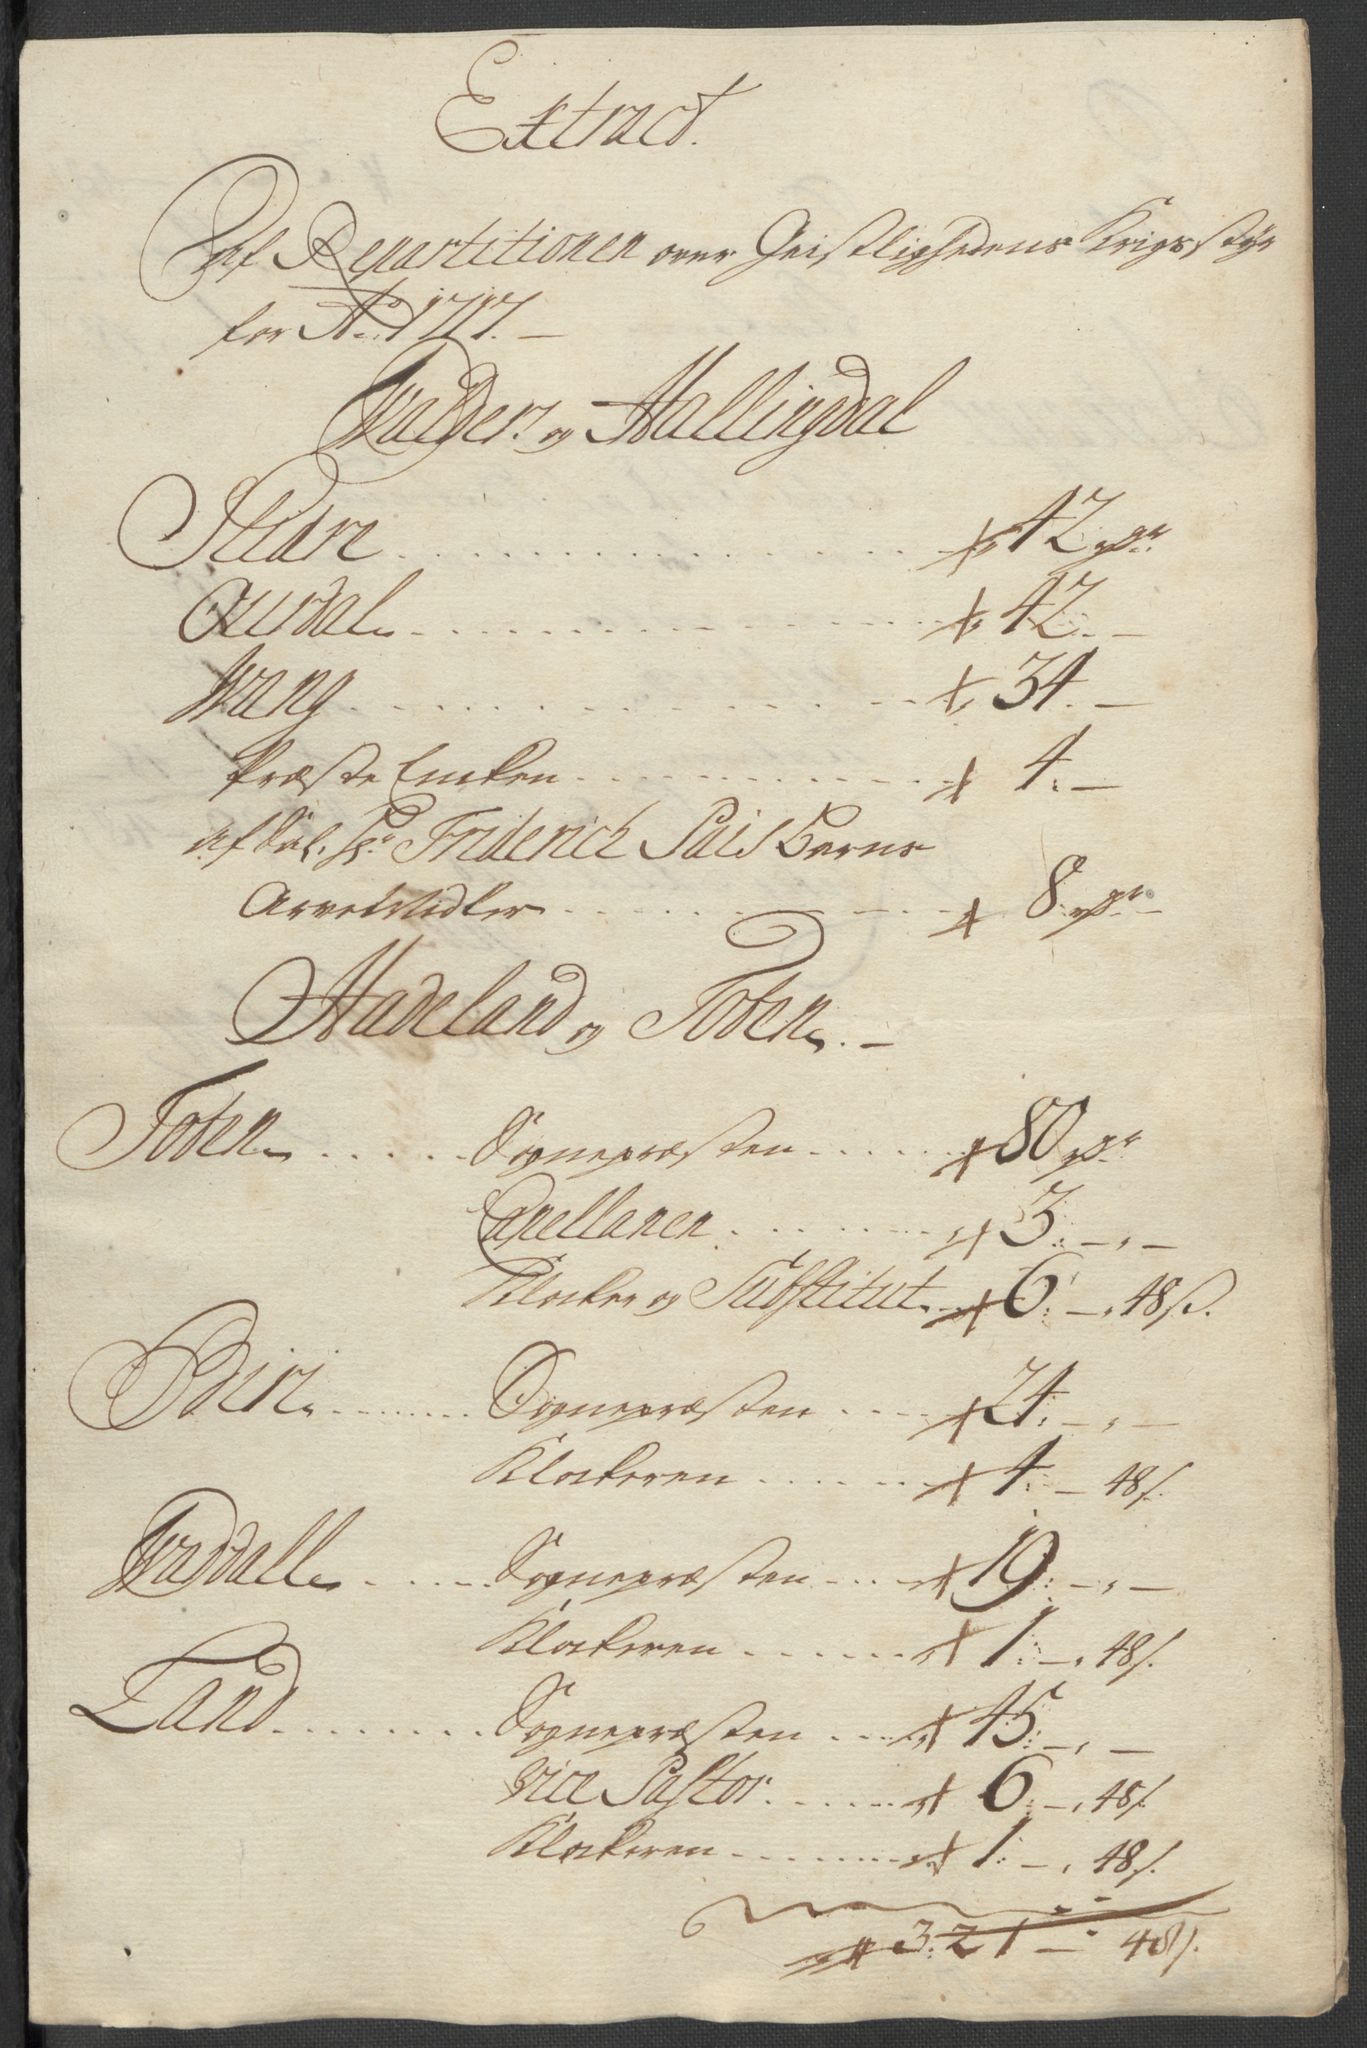 Extract.
Af Repartitionen over Geistlighedens Krigsstyr
for Ao. 1717. —
Walders og Hallingdal
Slidre 42 rdr.
Aurdal 42. —
Wang 34. —
Præste Encken 4. —
af Sal. Hr. Friderich Pais Børns
Arvemidler 8 rdr. —
Hadeland og Toten. —
Toten Sognepræsten 80 rdr.
Capellanen 3. — „ —
Klocker og Substitut 6. — „ 48 ß.
Biri Sognepræsten 24. — „ —
Klockeren 4. — 48 ß.
Wardall Sognepræsten 19. — „ —
Klockeren 1. — „ 48 ß.
Land Sognepræsten 45. — „ —
Vice Pastor 6. — „ 48 ß.
Klockeren 1. — „ 48 ß.
321 — 48 ß.